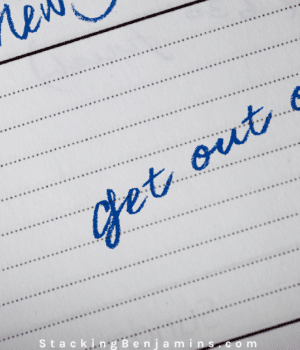 new
get out o
StackingBenjamins.com